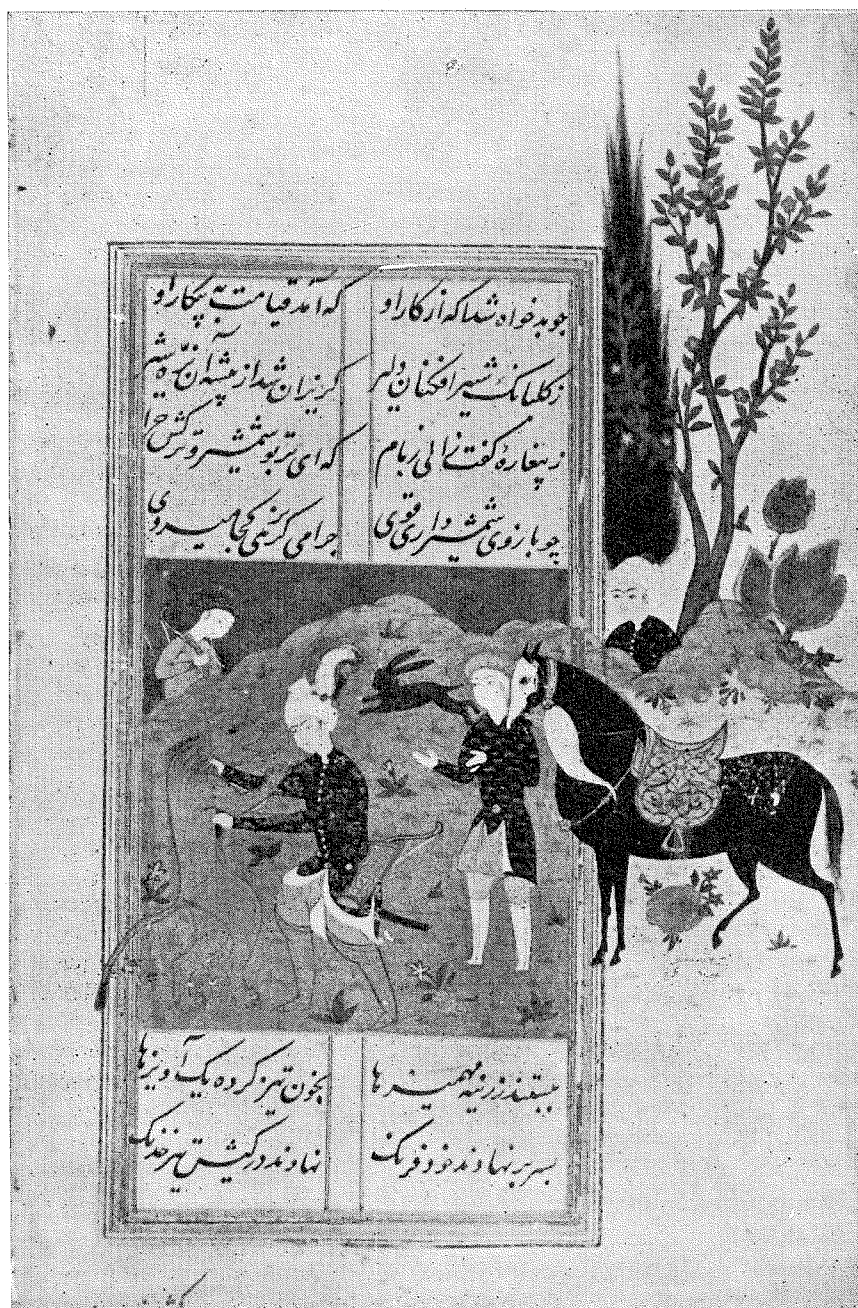 چو بدخواه شد آکه از کار او که آمد قیامت به پیکار او
ز کلبانک شیر افکنان دلیر کریزان شد از پیشه آن نره شیر
ز پیغاره کفت زالی ز بام که ای تر بو شمشیر و ترکش حرام
چو بازوی شمشیر داری قوی چرا می کریزی کجا میروی
ببستند زرینه مهمیزها بخون تیز کرده یک آویزها
بسر بر نهادند خود فرنک نهادند در کیش تیر خدنک